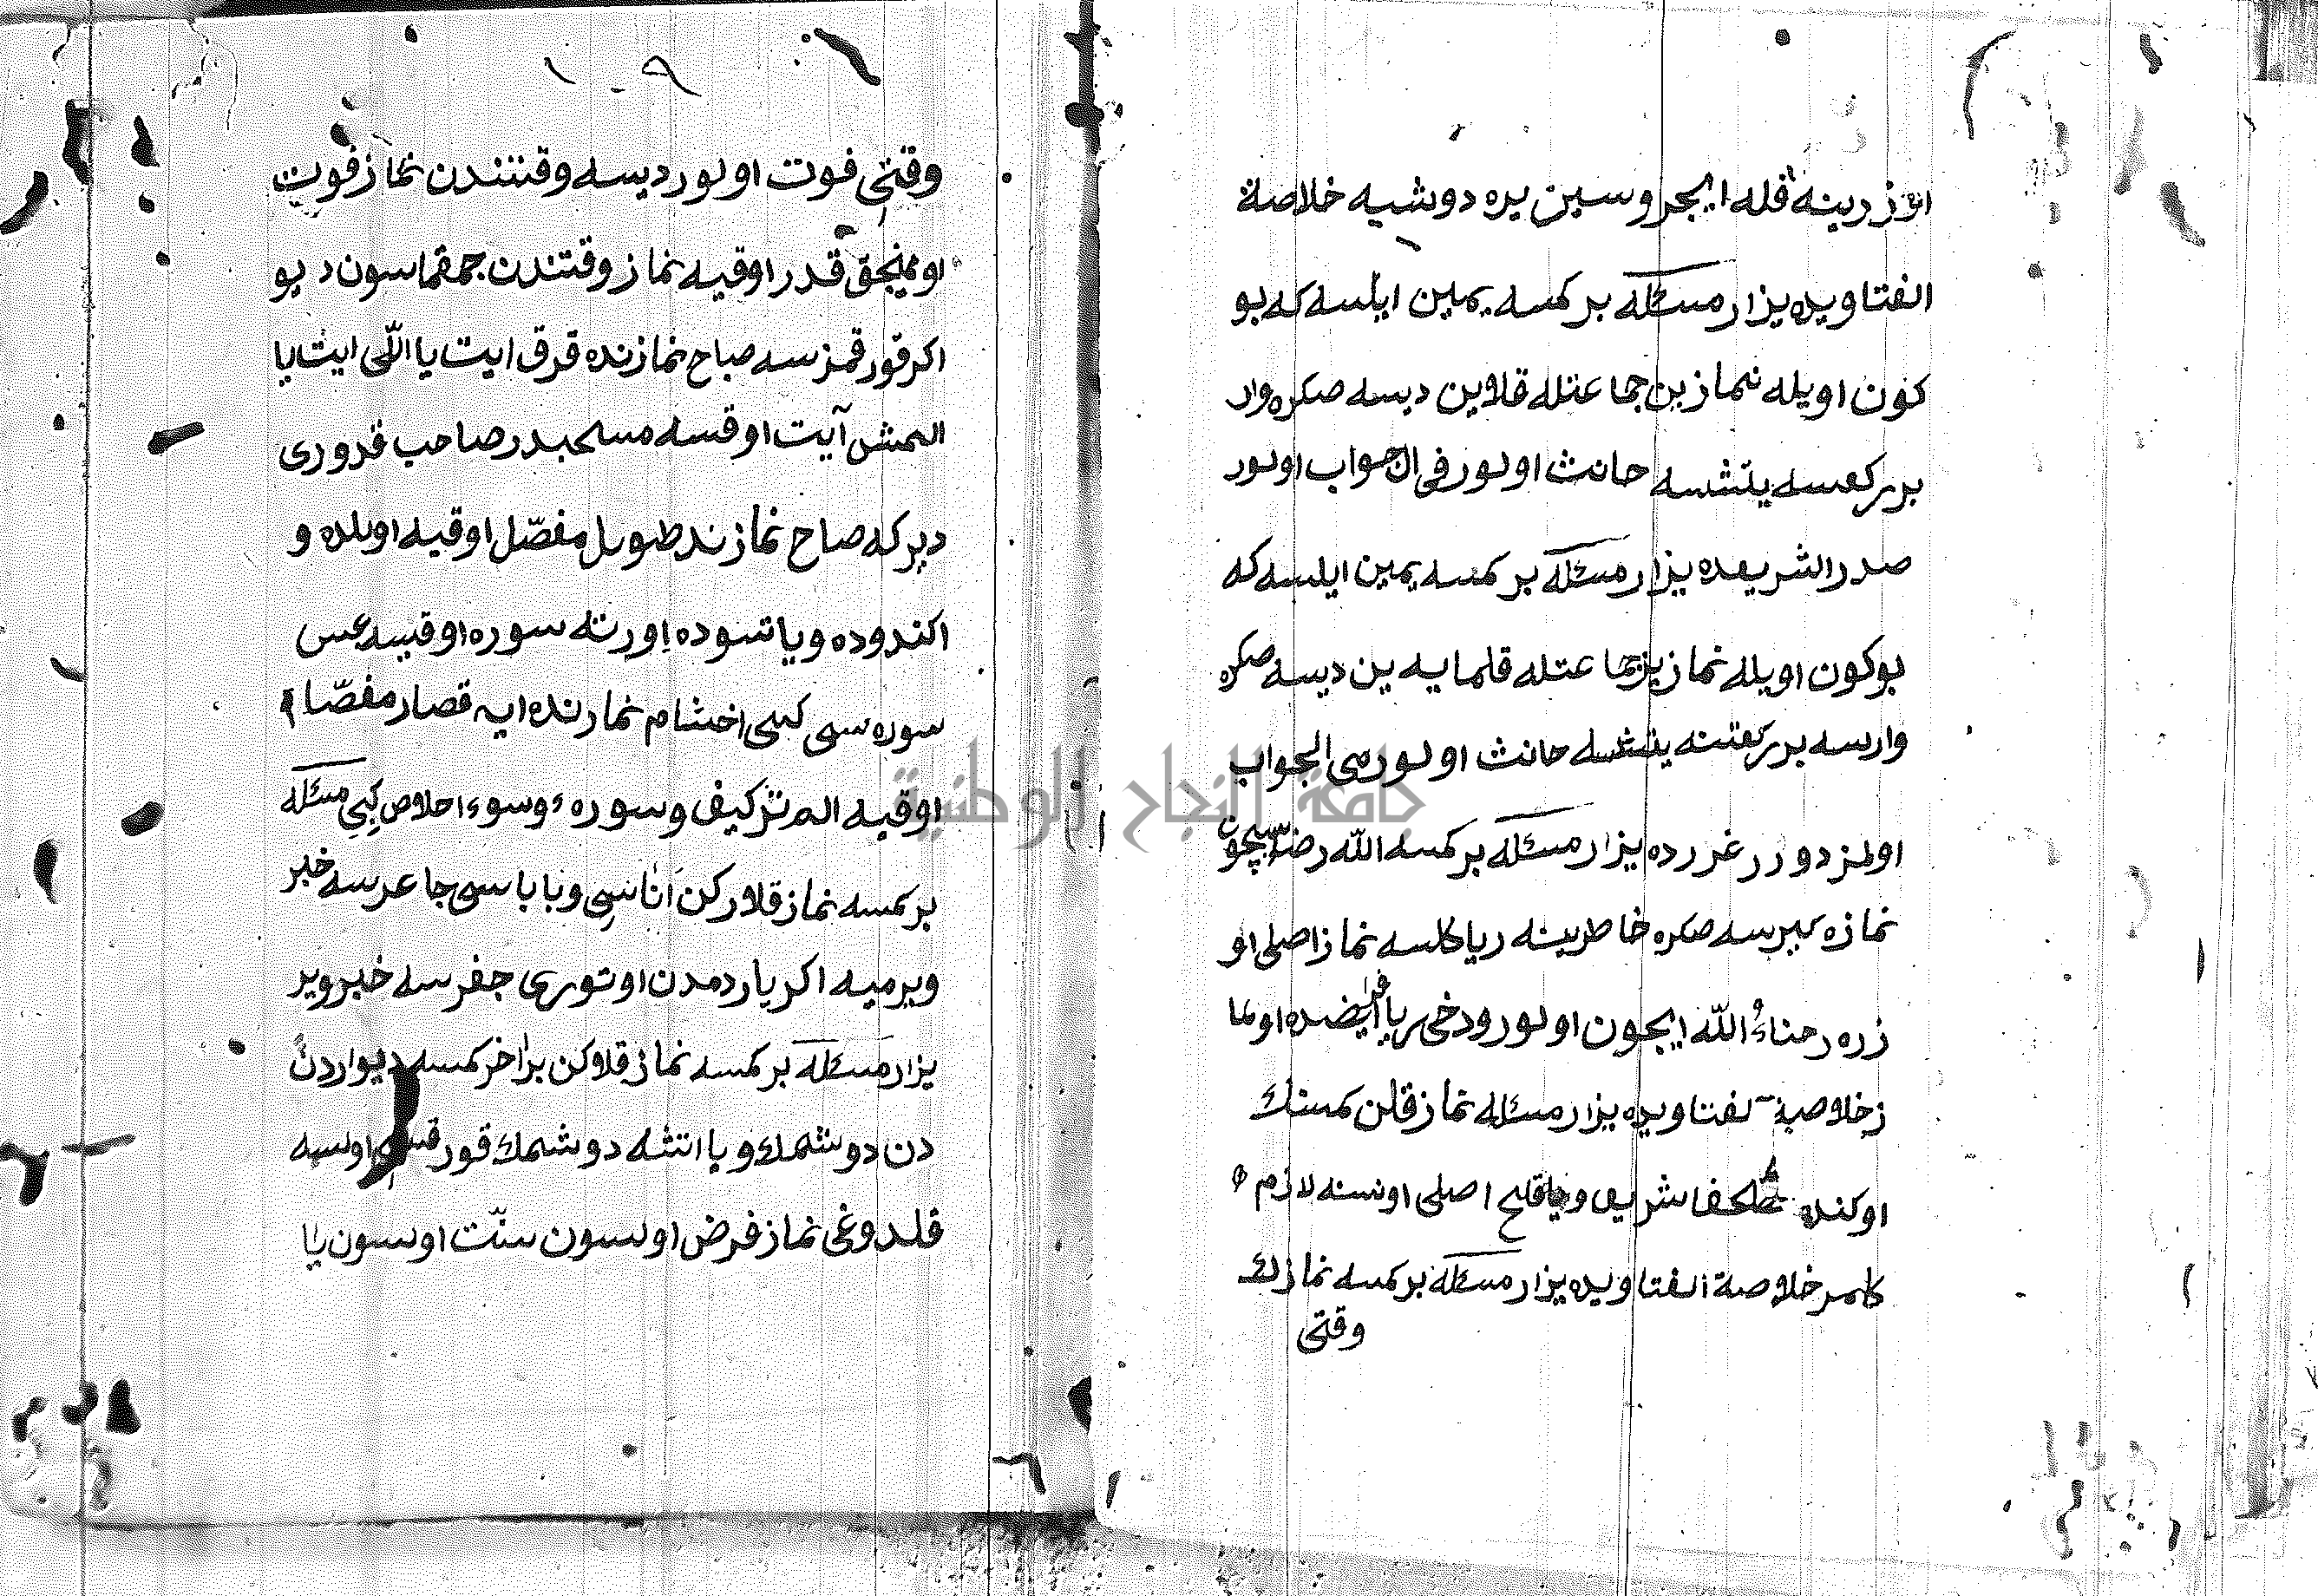 اوزرينه قله ايچر و سين يره دوشيه خلاصة
الفتاويده يزار مسئله بر كمسه يمين ايلسه كه بو
كون اويله نمازين جماعتله قلاين ديسه صكره وار
بر ركعسه يتشسه حانث اولور فى الجواب اولور
صدر الشريعده يزار مسئله بر كمسه يمين ايلسه كه
بو كون اويله نمازين جماعتله قلمايه ين ديسه صكره
وارسه بر ركعتنه يتشسه حانث اولور فى الجواب
اولمز دورر غررده يزار مسئله بر كمسه الله رضاسيچون
نمازه كيرسه صكره خاطرينه ريا كلسه نماز اصلى او
زره رضاء الله ايچون اولور ودخى ريا فرايضده اولما
ز خلاصة الفتاويده يزار مسئله نماز قلن كمسنك
اوكنده مصحف شريف ويا قلج اصلى اولسنه لازم
كلمز خلاصة الفتاويده يزار مسئله بر كمسه نمازك
وقتى
وقتى فوت اولور ديسه وقتندن نماز فوت
اولمينجق قدر اوقيه نماز وقتندن چمقماسون ديو
اكر قورقمزسه صباح نمازنده قرق ايت يا اللى ايت يا
التمش آيت اوقسه مستحبدر صاحب قدورى
ديركه صباح نمازنده طويل مفصّل اوقيه اويلده و
اكندوده ويا تسوده اورته سوره اوقيسه عبس
سوره سى كبى اخشام نمازنده ايه قصار مفصّل
اوقيه الم تر كيف وسوره وسوء اخلاص كبى مسئله
بر كمسه نماز قلاركن اناسى و باباسى چاغرسه خبر
ويرميه اكر ياردمدن اوتورى چغرسه خبر وير
يزار مسئله بر كمسه نماز قلاركن بر اخر كمسه ديواردن
دن دوشمك ويا اتشه دوشمك قورقسى اولسه
قلدوغى نماز فرض اولسون سنّت اولسون يا
جامعة النجاح الوطنية